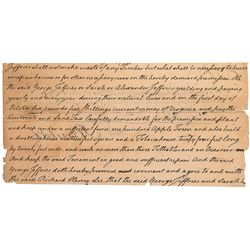 Jeffries shall not make waste of any Timber but what shall be necessary to build
or repair houses or for other necessary uses on the hereby demised premises. He
the said George Jeffries or Sarah or Alexander Jeffries yielding and paying
yearly and every year during their natural lives and on the first day of
October five pounds five Shillings current money of Virginia and pay the
Quitrents and Land Tax Lawfully demandable for the premises and plant
and keep under a sufficient fence one hundred Apple Trees and also build
a dwelling house twenty by sixteen and a Tobacco house twenty four feet long
by twenty feet wide, and work no more than three Tithables and an Overseer
And keep the said Tenement in good and sufficient repair And the said
George Jeffries doth hereby promise covenant and agree to and with
the said Richard Henry Lee that the said George Jeffries and Sarah